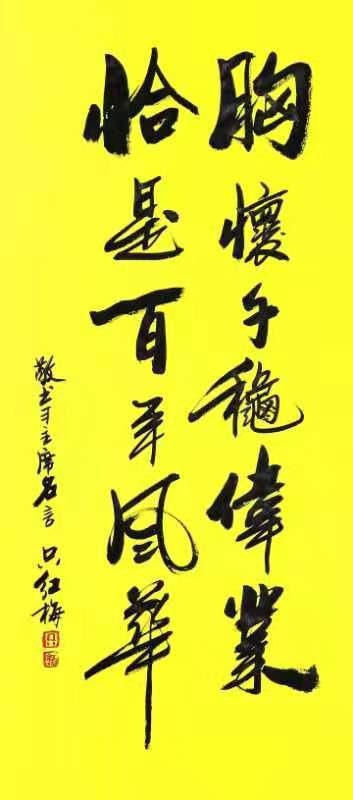 胸懷千秋偉業
恰是百年风華
敬书习主席名言 只红梅